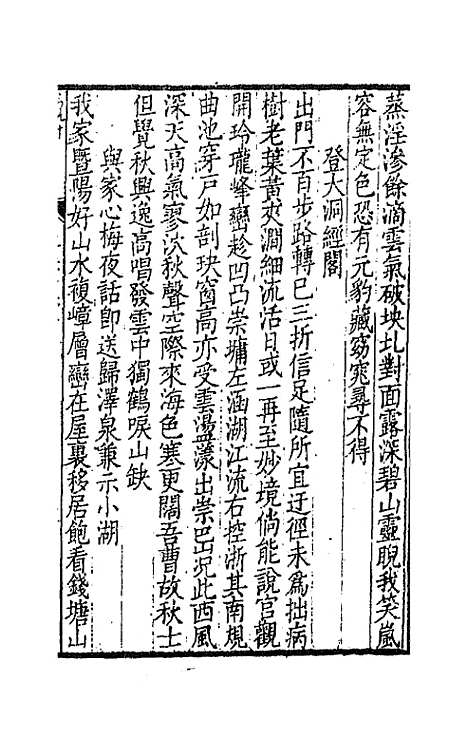 蒸淫滲餘滴雲氣破坱圠對面露深碧山靈睨我笑嵐
容無定色恐有元豹藏窈窕尋不得
登大洞經閣
出門不百步路轉已三折信足隨所宜迂徑未爲拙病
樹老葉黃夾澗細流活日或一再至妙境倘能說官觀
開玲瓏峰巒趁凹凸崇墉左涵湖江流右控浙其南規
曲池穿戸如剖玦窗高亦受雲盪漾出崇巴況此西風
深天高氣寥泬秋聲空際來海色寒更闊吾曹故秋士
但覺秋興逸高唱發雲中獨鶴唳山缺
與家心梅夜話卽送歸澤泉兼示小湖
我家暨陽好山水複嶂層巒在屋裏移居飽看錢塘山